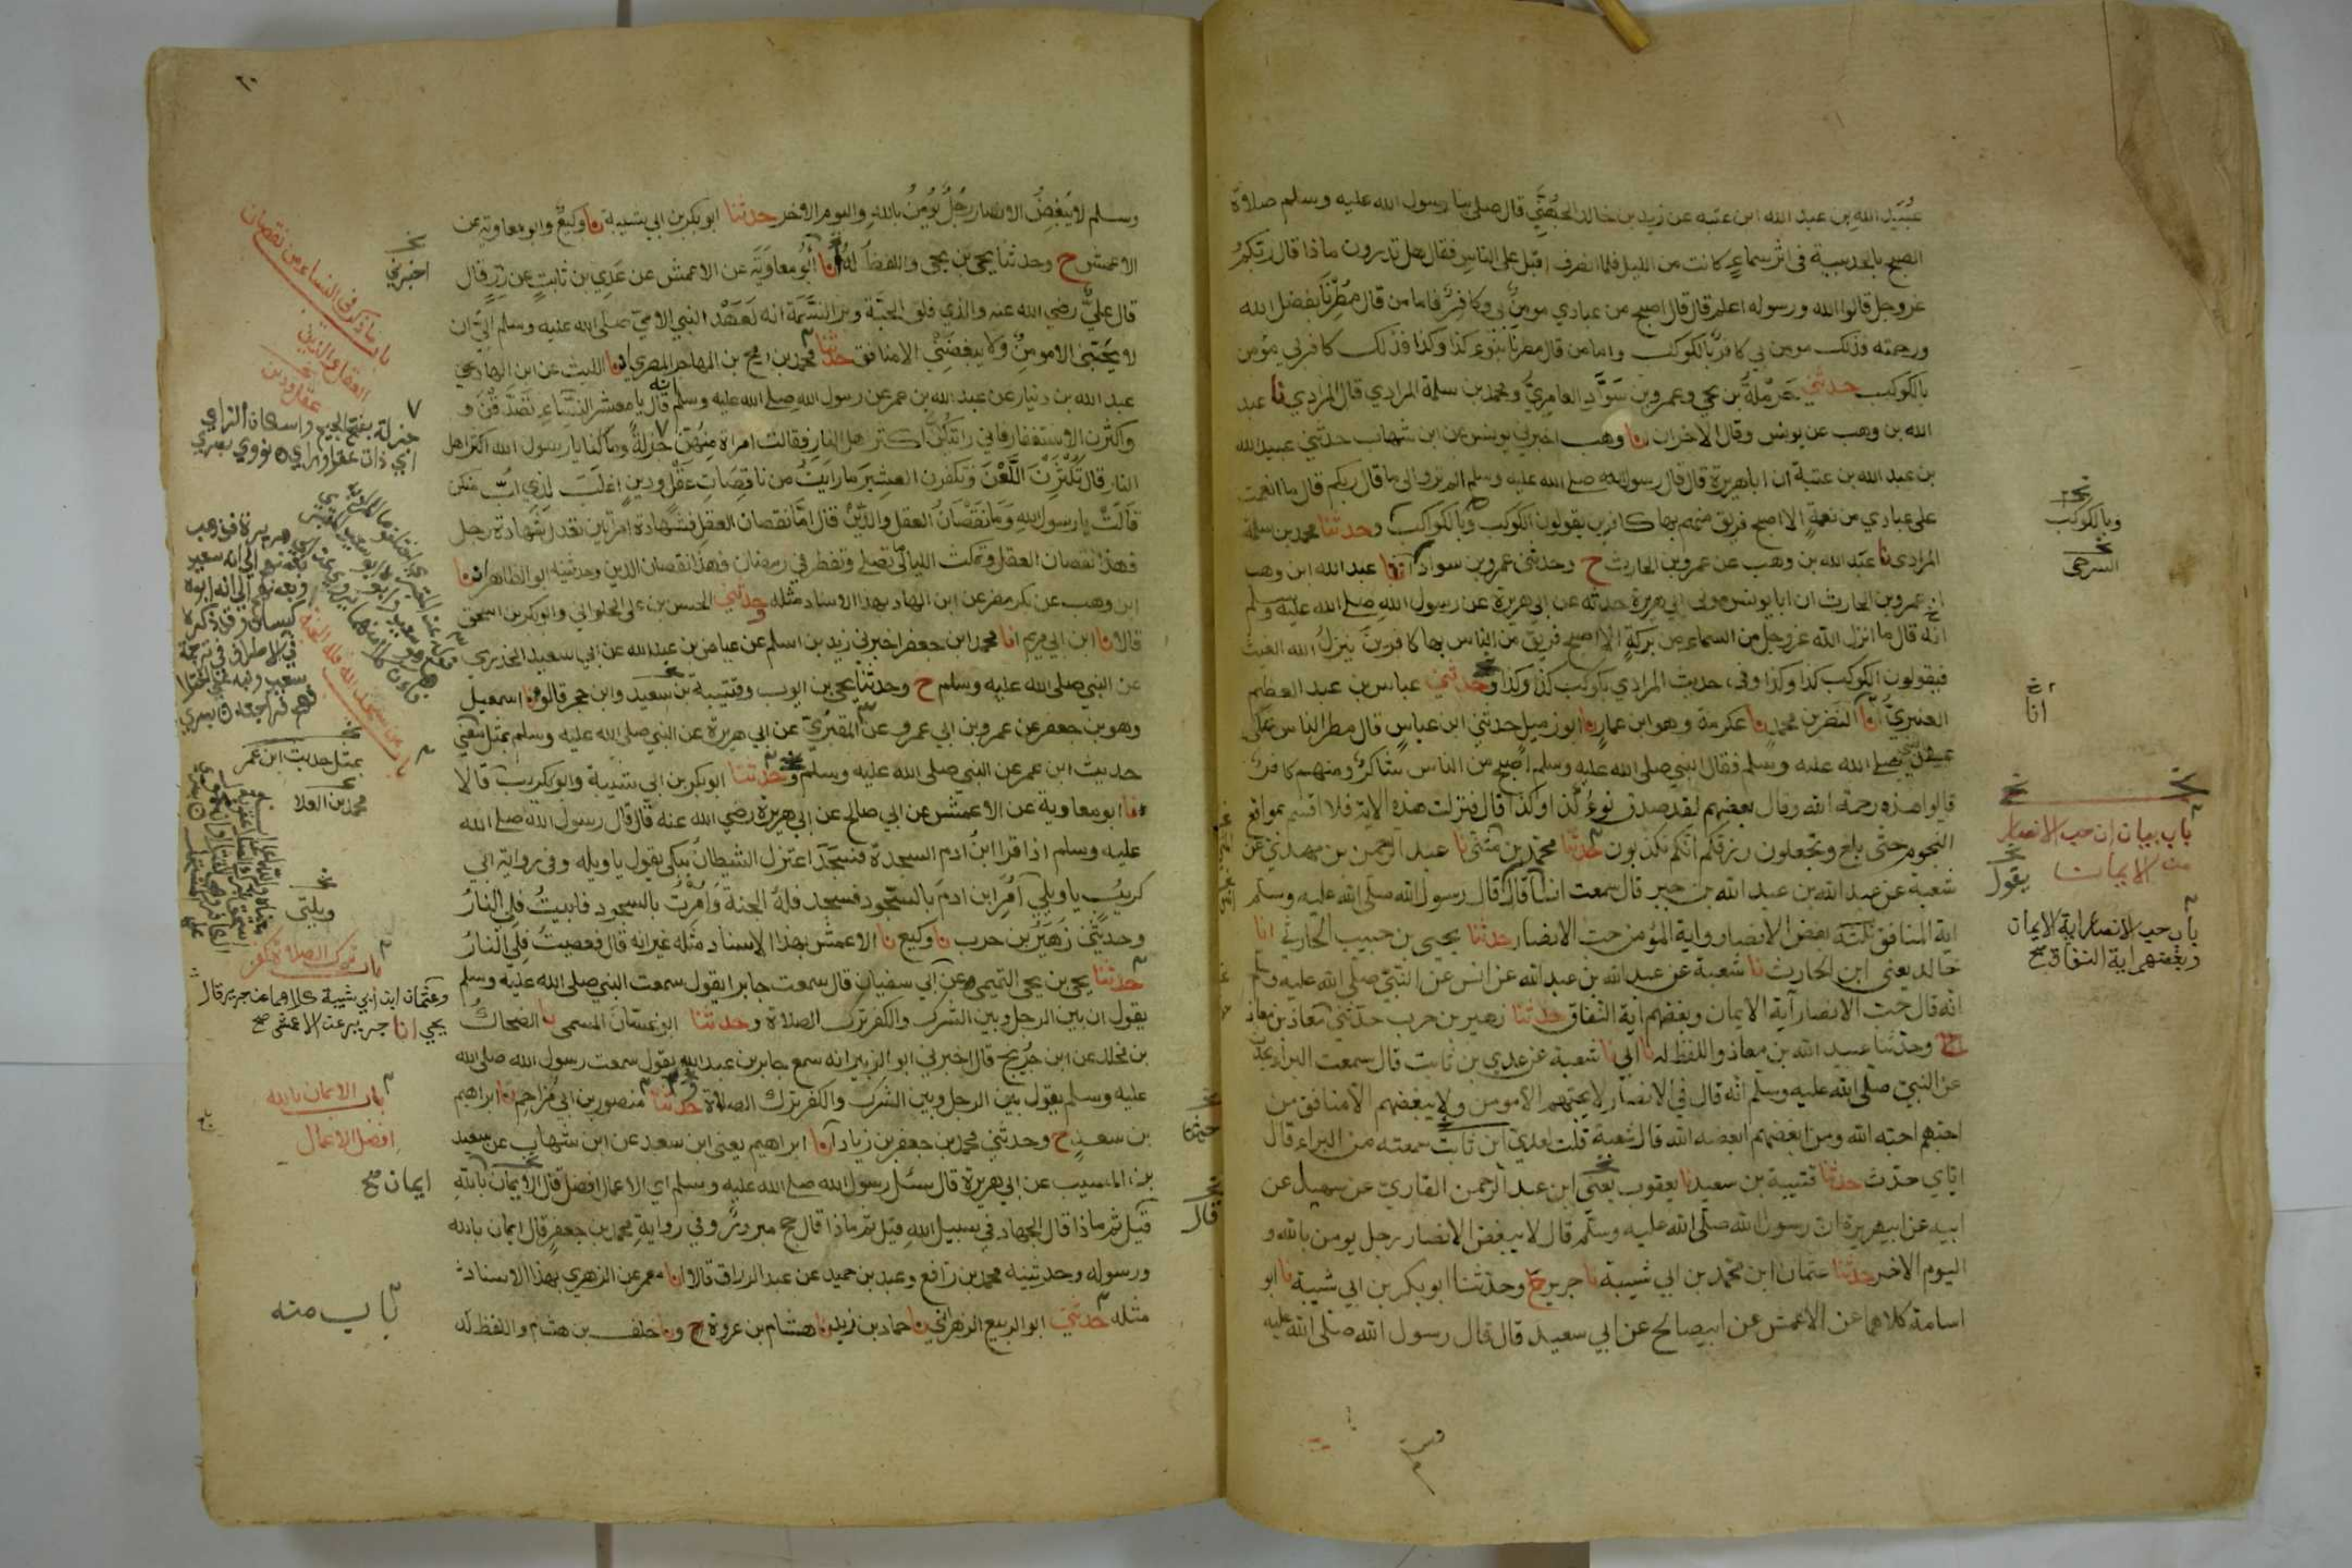 عُبَيد الله بن عبد الله ابن عتبه عن زيد بن خالد الجُهَنِيِّ قال صلى بنا رسول الله عليه وسلم صلاة
الصبح بالحديبية في اثر سماءٍ كانت من الليل فلما انصرف اقبل على الناس فقال هل تدرون ماذا قال ربكم
عز وجل قالوا الله ورسوله اعلم قال قال اصبح من عبادي مومن بي وكافر فاما من قال مطرنا بفضل الله
ورحمته فذلك مومن بي كافر بالكوكب واما من قال مطرنا بنوء كذا وكذا فذلك كافر بي مؤمن
بالكوكب حدثني حرملة بن يحيى وعمرو بن سَوَّاد العامريُّ ومحمد بن سلمة المرادي قال المرادي نا عبد
الله بن وهب عن يونس وقال الاخران نا وهب اخبرني يونس عن ابن شهاب حدثني عبيد الله
بن عبد الله بن عتبة ان ابا هريرة قال قال رسول الله صلى الله عليه وسلم الم تروا الى ما قال ربكم قال ما انعمت
على عبادي من نعمةٍ الا اصبح فريق منهم بها كافرين يقولون الكوكب وبالكواكب وحدثنا محمد بن سلمة
المرادى نا عبد الله بن وهب عن عمرو بن الحارث ح وحدثني عمرو بن سواد انا عبد الله ابن وهب
عمرو بن الحارث ان ابا يونس مولى ابي هريرة حدثه عن ابي هريرة عن رسول الله صلى الله عليه وسلم
انه قال ما انزل الله عز وجل من السماء من بركةٍ الا اصبح فريق من الناس بها كافرين ينزل الله الغيث
فيقولون الكوكب كذا وكذا وفي حديث المرادي بكوكب كذا وكذا وحدثني عباس بن عبد العظيم
العنبريُّ نا النضر بن محمدٍ نا عكرمة وهو ابن عمارٍ نا ابو زميل حدثني ابن عباس قال مطر الناس على
عهد النبي صلى الله عليه وسلم فقال النبي صلى الله عليه وسلم اصبح من الناس شاكرٌ ومنهم كافرٌ
قالوا هذه رحمة الله وقال بعضهم لقد صدق نوءُ كذا وكذا قال فنزلت هذه الاية فلا اقسم بمواقع
النجوم حتى بلغ وتجعلون رزقكم انكم تكذبون حدثنا محمد بن مثنى نا عبد الرحمن بن مهدي عن
شعبة عن عبد الله بن عبد الله بن جبر قال سمعت انسا قال قال رسول الله صلى الله عليه وسلم
اية المنافق بغض الانصار واية المؤمن حب الانصار حدثنا يحيى بن حبيب الحارثي انا
خالد يعني ابن الحارث نا شعبة عن عبد الله بن عبد الله عن انس عن النبيّ صلى الله عليه وسلم
انه قال حب الانصار آية الايمان وبغضهم اية النفاق حدثنا زهير بن حرب حدثني معاذ بن معاذ
ح وحدثنا عبيد الله بن معاذ واللفظ له نا ابي نا شعبة عن عدي بن ثابت قال سمعت البراء يحدث
عن النبيّ صلى الله عليه وسلم انه قال في الانصار لا يحبهم الا مومن ولا يبغضهم الا منافق من
احبهم احبه الله ومن ابغضهم ابغضه الله قال شعبة قلت لعدي ابن ثابت سمعته من البراء قال
اياي حدّث حدثنا قتيبة بن سعيد نا يعقوب يعني ابن عبد الرحمن القاري عن سهيل عن
ابيه عن ابي هريرة ان رسول الله صلى الله عليه وسلم قال لا يبغض الانصار رجل يومن بالله و
اليوم الاخر حدثنا عثمان ابن محمد بن ابي شيبة نا جرير ح وحدثنا ابو بكر بن ابي شيبة نا ابو
اسامة كلاهما عن الاعمش عن ابي صالح عن ابي سعيد قال قال رسول الله صلى الله عليه
وبالكوكب
انا
باب بيان ان حب الانصار
من الايمان
يقول
باب حب الانصار اية الايمان
وبغضهم اية النفاق صح
٢٠
وسلم لا يبغض الانصار رجُلٌ يؤمنُ باللهِ واليوم الاخر حدثنا ابو بكر بن ابي شيبة نا وكيعٌ وابو معاوية عن
الاعمش ح وحدثنا يحيى بن يحيى واللفظُ لهُ انا ابُو معاويَة عن الاعمش عن عَدِي بن ثابتٍ عن زِرٍ قال
قال عليٌّ رضي الله عنه والذي فلق الحبَّة وبرا النَّسَمَة انه لعَهْدُ النبي الاميّ صلى الله عليه وسلم اليّ ان
لا يُحبَّني الا مومنٌ ولا يبغضَنِي الا منافق حدثنا محمد بن رمح بن المهاجر المصري انا الليث عن ابن الهاد عن
عبد الله بن دينار عن عبد الله بن عمر عن رسول الله صلى الله عليه وسلم انه قال يا معشر النِّساء تَصَدَّقْنَ و
واكثرن الاستغفار فاني رايتكُنَّ اكثر اهل النار فقالت امراة مِنهُنّ جزلةٌ وما لنا يا رسول الله اكثر اهل
النار قال تُكْثِرْنَ اللَّعْنَ وتكفرن العشِيرَ ما رايتُ من ناقِصَاتِ عقْلٍ ودينٍ اغلبَ لذي لبٍّ منكن
قالتْ يا رسول اللهِ وما نقْصَانُ العقل والدِّينْ قال امّا نقصان العقل فشهادة امراتين تعدل شهادة رجل
فهذا نقصان العقل وتمكث الليالي ما تصلي وتفطر في رمضان فهذا نقصان الدين وحدثنيه ابو الطاهر انا
ابن وهب عن بكر بن مضر عن ابن الهاد بهذا الاسناد مثله وحدثني الحسن بن علي الحلواني وابو بكر بن اسحق
قالا نا ابن ابي مريم انا محمد ابن جعفر اخبرني زيد بن اسلم عن عياض بن عبد الله عن ابي سعيد الخدري
عن النبي صلى الله عليه وسلم ح وحدثنا يحيى بن ايوب وقتيبة بن سعيد وابن حجر قالو نا اسمعيل
وهو بن جعفر عن عمرو بن ابي عمرو عن المقبُري عن ابي هريرة عن النبي صلى الله عليه وسلم بمثل معنى
حديث ابن عمر عن النبي صلى الله عليه وسلم وحدثنا ابو بكر بن ابي شيبة وابو كريب قالا
نا ابو معاوية عن الاعمش عن ابي صالح عن ابي هريرة رضي الله عنه قال قال رسول الله صلى الله
عليه وسلم اذا قرا ابنُ ادم السجدة فسجَدَ اعتزل الشيطانُ يبكي يقول يا ويله وفي رواية ابي
كريبٍ يا ويلي اُمِرَ ابن ادمَ بالسّجود فسجد فلهُ الجنةُ وَاُمِرْتُ بالسجود فابيتُ فلي النارُ
وحدثني زُهَيْرُ بن حرب نا وكيع نا الاعمش بهذا الاسناد مثله غير انه قال فعصيتُ فلِي النارُ
حدثنا يحيى بن يحيى التميمي عن ابي سفيان قال سمعت جابرا يقول سمعت النبي صلى الله عليه وسلم
يقول ان بين الرجل وبين الشرك والكفر ترك الصلاة وحدثنا ابو غسّان المسمعي نا الضحاكُ
بن مخلد عن ابن جُرَيجٍ قال اخبرني ابو الزبير انه سمع جابر بن عبد الله يقول سمعت رسول الله صلى الله
عليه وسلم يقول بين الرجل وبين الشرك والكفر ترك الصلاة وحدثنا منصور بن ابي مُزَاحِمٍ نا ابراهيم
بن سعدٍ ح وحدثني محمد بن جعفر بن زياد انا ابراهيم يعني ابن سعد عن ابن شهاب عن سعيد
بن المسيب عن ابي هريرة قال سئل رسول الله صلى الله عليه وسلم اي الاعمال افضل قال الايمان باللهِ
قيل ثم ماذا قال الجهاد في سبيل الله قيل ثم ماذا قال حج مبرورٌ وفي رواية محمد بن جعفر قال ايمان بالله
ورسوله وحدثنيه محمد بن رافع وعبد بن حميد عن عبد الرزاق قالا انا معمر عن الزهري بهذا الاسناد
مثله حدثني ابو الربيع الزهراني نا حماد بن زيد نا هشام بن عروة ح ونا خلف بن هشام واللفظ له
اخبرني
باب ما ذكر في النساء من نقصان
العقل والدين
عقل ودين
جزلة بفتح الجيم واسكان الزاي
اي ذات عقل وراي نووي
باب من سجد لله فله الجنة
بمثل حديث ابن عمر
محمد بن العلا
ويلتى
باب ترك الصلاة كفر
وعثمان ابن ابي شيبة كلاهما عن جرير قال
يحيى انا جرير عن الاعمش صح
باب الايمان بالله
افضل الاعمال
ايمان صح
باب منه
قال